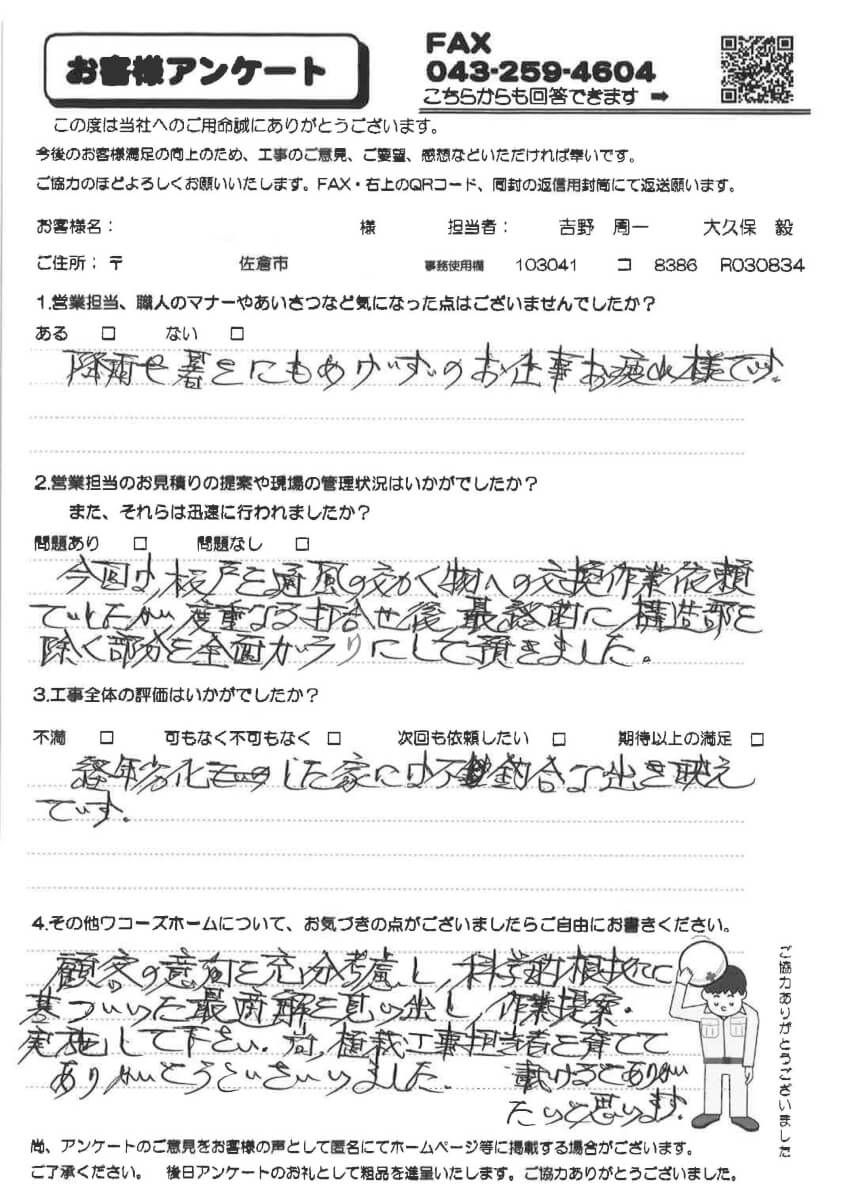 お客様アンケート
FAX
043-259-4604
こちらからも回答できます ➡
この度は当社へのご用命誠にありがとうございます。
今後のお客様満足の向上のため、工事のご意見、ご要望、感想などいただければ幸いです。
ご協力のほどよろしくお願いいたします。FAX・右上のQRコード、同封の返信用封筒にて返送願います。
お客様名： 様 担当者： 吉野 周一 大久保 毅
ご住所：〒 佐倉市 事務使用欄 103041 コ 8386 R030834
1.営業担当、職人のマナーやあいさつなど気になった点はございませんでしたか？
ある □ ない □
降雨や暑さにもめげずのお仕事お疲れ様です.
2.営業担当のお見積りの提案や現場の管理状況はいかがでしたか？
また、それらは迅速に行われましたか？
問題あり □ 問題なし □
今回は,板戸を通風の効く物への交換作業依頼
でしたが,度重なる打合せ後 最終的に構造部を
除く部分を全面ガラリにして頂きました。
3.工事全体の評価はいかがでしたか？
不満 □ 可もなく不可もなく □ 次回も依頼したい □ 期待以上の満足 □
経年劣化した家には不釣合な出き映え
です.
4.その他ワコーズホームについて、お気づきの点がございましたらご自由にお書きください。
顧客の意向を充分考慮し,科学的根拠に
基づいた最適解を見い出し,作業提案・
実施して下さい.尚,植栽工事担当者を育てて
ありがとうございました. 戴けるとありが
たいと思います.
ご協力ありがとうございました
尚、アンケートのご意見をお客様の声として匿名にてホームページ等に掲載する場合がございます。
ご了承ください。 後日アンケートのお礼として粗品を進呈いたします。ご協力ありがとうございました。